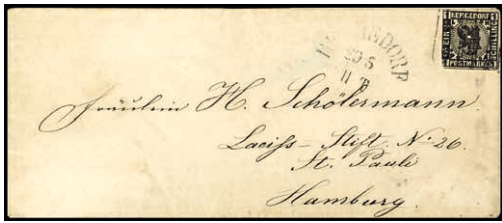 BERGEDORF
EIN
SCHILLING
POSTMARKE
Fräulein H. Schölermann.
Laeiss-Stift. No. 26.
St. Pauli
Hamburg.